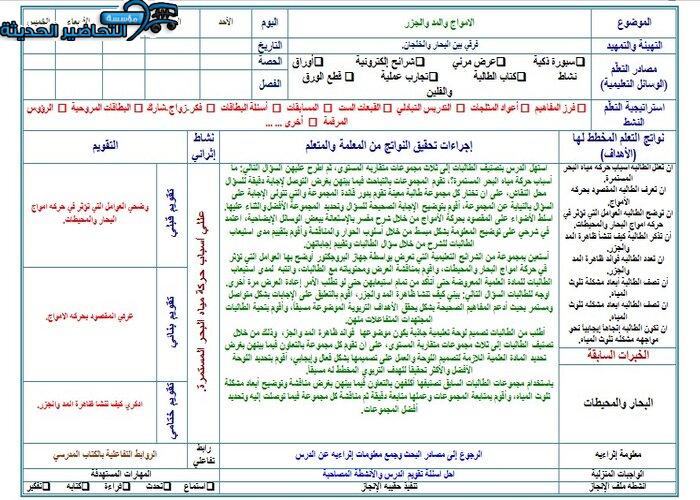 مؤسسة
التحاضير الحديثة
الموضوع
الامواج والمد والجزر
اليوم
الأحد
الأربعاء
الخميس
التهيئة والتمهيد
فرقي بين البحار والخلجان.
التاريخ
مصادر التعلّم
(الوسائل التعليمية)
سبورة ذكية
عرض مرئي
شرائح إلكترونية
أوراق
نشاط
كتاب الطالبة
تجارب عملية
قطع الورق
والفلين
الحصة
الفصل
استراتيجية التعلّم
النشط
فرز المفاهيم
أعواد المثلجات
التدريس التبادلي
القبعات الست
المسابقات
أسئلة البطاقات
فكر.زواج.شارك
البطاقات المروحية
الرؤوس
المرقمة
أخرى ... ...
نواتج التعلم المخطط لها
(الأهداف)
إجراءات تحقيق النواتج من المعلمة والمتعلم
نشاط
إثرائي
التقويم
ان تعلل الطالبه اسباب حركه مياه البحر
المستمرة.
ان تعرف الطالبه المقصود بحركه
الأمواج.
ان توضح الطالبه العوامل التي تؤثر في
حركه امواج البحار والمحيطات.
أن تذكر الطالبة كيف تنشأ ظاهرة المد
والجزر.
ان تعدد الطالبه فوائد ظاهرة المد
والجزر.
أن تصف الطالبة ابعاد مشكلة تلوث
المياه.
أن تصف الطالبة ابعاد مشكلة تلوث
المياه.
ان تكون الطالبه إتجاها إيجابيا نحو
مواجهه مشكله تلوث المياه.
الخبرات السابقة
البحار والمحيطات
استهل الدرس بتصنيف الطالبات إلى ثلاث مجموعات متقاربة المستوى، ثم اطرح عليهن السؤال التالي: ما
أسباب حركة مياه البحر المستمرة؟، تقوم المجموعات بالتباحث فيما بينهن بغرض التوصل لإجابة دقيقة للسؤال
محل النقاش، على ان تختار كل مجموعة طالبة معينة تقوم بدور قائدة المجموعة والتي تتولى الإجابة على
السؤال بالنيابة عن المجموعة، أقوم بتوضيح الإجابة الصحيحة للسؤال وتحديد المجموعة الأفضل والثناء عليها.
اسلط الأضواء على المقصود بحركة الأمواج من خلال شرح مفسر بالإستعانة ببعض الوسائل الإيضاحية، اعتمد
في شرحي على توضيح المعلومة بشكل مبسط من خلال أسلوب الحوار والمناقشة وأقوم بتقييم مدى استيعاب
الطالبات للشرح من خلال سؤال الطالبات وتقييم إجاباتهن.
أستعين بمجموعة من الشرائح التعليمية التي تعرض بواسطة جهاز البروجكتور أوضح بها العوامل التي تؤثر
في حركة امواج البحار والمحيطات، وأقوم بمناقشة العرض ومحتوياته مع الطالبات، وانتبه لمدى استيعاب
الطالبات للمادة العلمية المعروضة حتى أتأكد من تمام استيعابهن حتى لو تطلب الأمر إعادة العرض مرة أخرى.
اوجه للطالبات السؤال التالي: بيني كيف تنشأ ظاهرة المد والجزر، أقوم بالتعليق على الإجابات بشكل متواصل
ومستمر بحيث أدعم المفاهيم الصحيحة بشكل يحقق الأهداف التربوية الموضوعة مسبقاً، وأقوم بتحية الطالبات
المجتهدات المتفاعلات منهن.
أطلب من الطالبات تصميم لوحة تعليمية جذابة يكون موضوعها فوائد ظاهرة المد والجز، وذلك من خلال
تصنيف الطالبات إلى ثلاث مجموعات متقاربة المستوى، على ان تقوم كل مجموعة بالتعاون فيما بينهن بغرض
تحديد المادة العلمية اللازمة لتصميم اللوحة والعمل على تصميمها بشكل فعال وإيجابي، أقوم بتحديد اللوحة
الأفضل والأكثر تحقيقاً للهدف التربوي المخطط له مسبقاً.
باستخدام مجموعات الطالبات السابق تصنيفها أكلفهن بالتعاون فيما بينهن بغرض مناقشة وتوضيح أبعاد مشكلة
تلوث المياه، وأقوم بمتابعة المجموعات وعملها متابعة دقيقة ثم مناقشة كل مجموعة فيما توصلت إليه وتحديد
أفضل المجموعات.
عللي أسباب حركة مياه البحر المستمرة.
تقويم قبلي
وضحي العوامل التي تؤثر في حركه امواج
البحار والمحيطات.
تقويم بنائي
عرفي المقصود بحركه الامواج.
تقويم ختامي
اذكري كيف تنشأ ظاهرة المد والجزر.
معلومة إثرائيه
الرجوع إلى مصادر البحث وجمع معلومات إثرائيه عن الدرس
رابط
تفاعلي
الروابط التفاعلية بالكتاب المدرسي
الواجبات المنزلية
احل اسئلة تقويم الدرس والأنشطة المصاحبة
المهارات المستهدفة
انشطه ملف الإنجاز
تنفيذ حقيبه الإنجاز
استماع
تحدث
قراءة
كتابه
تفكير